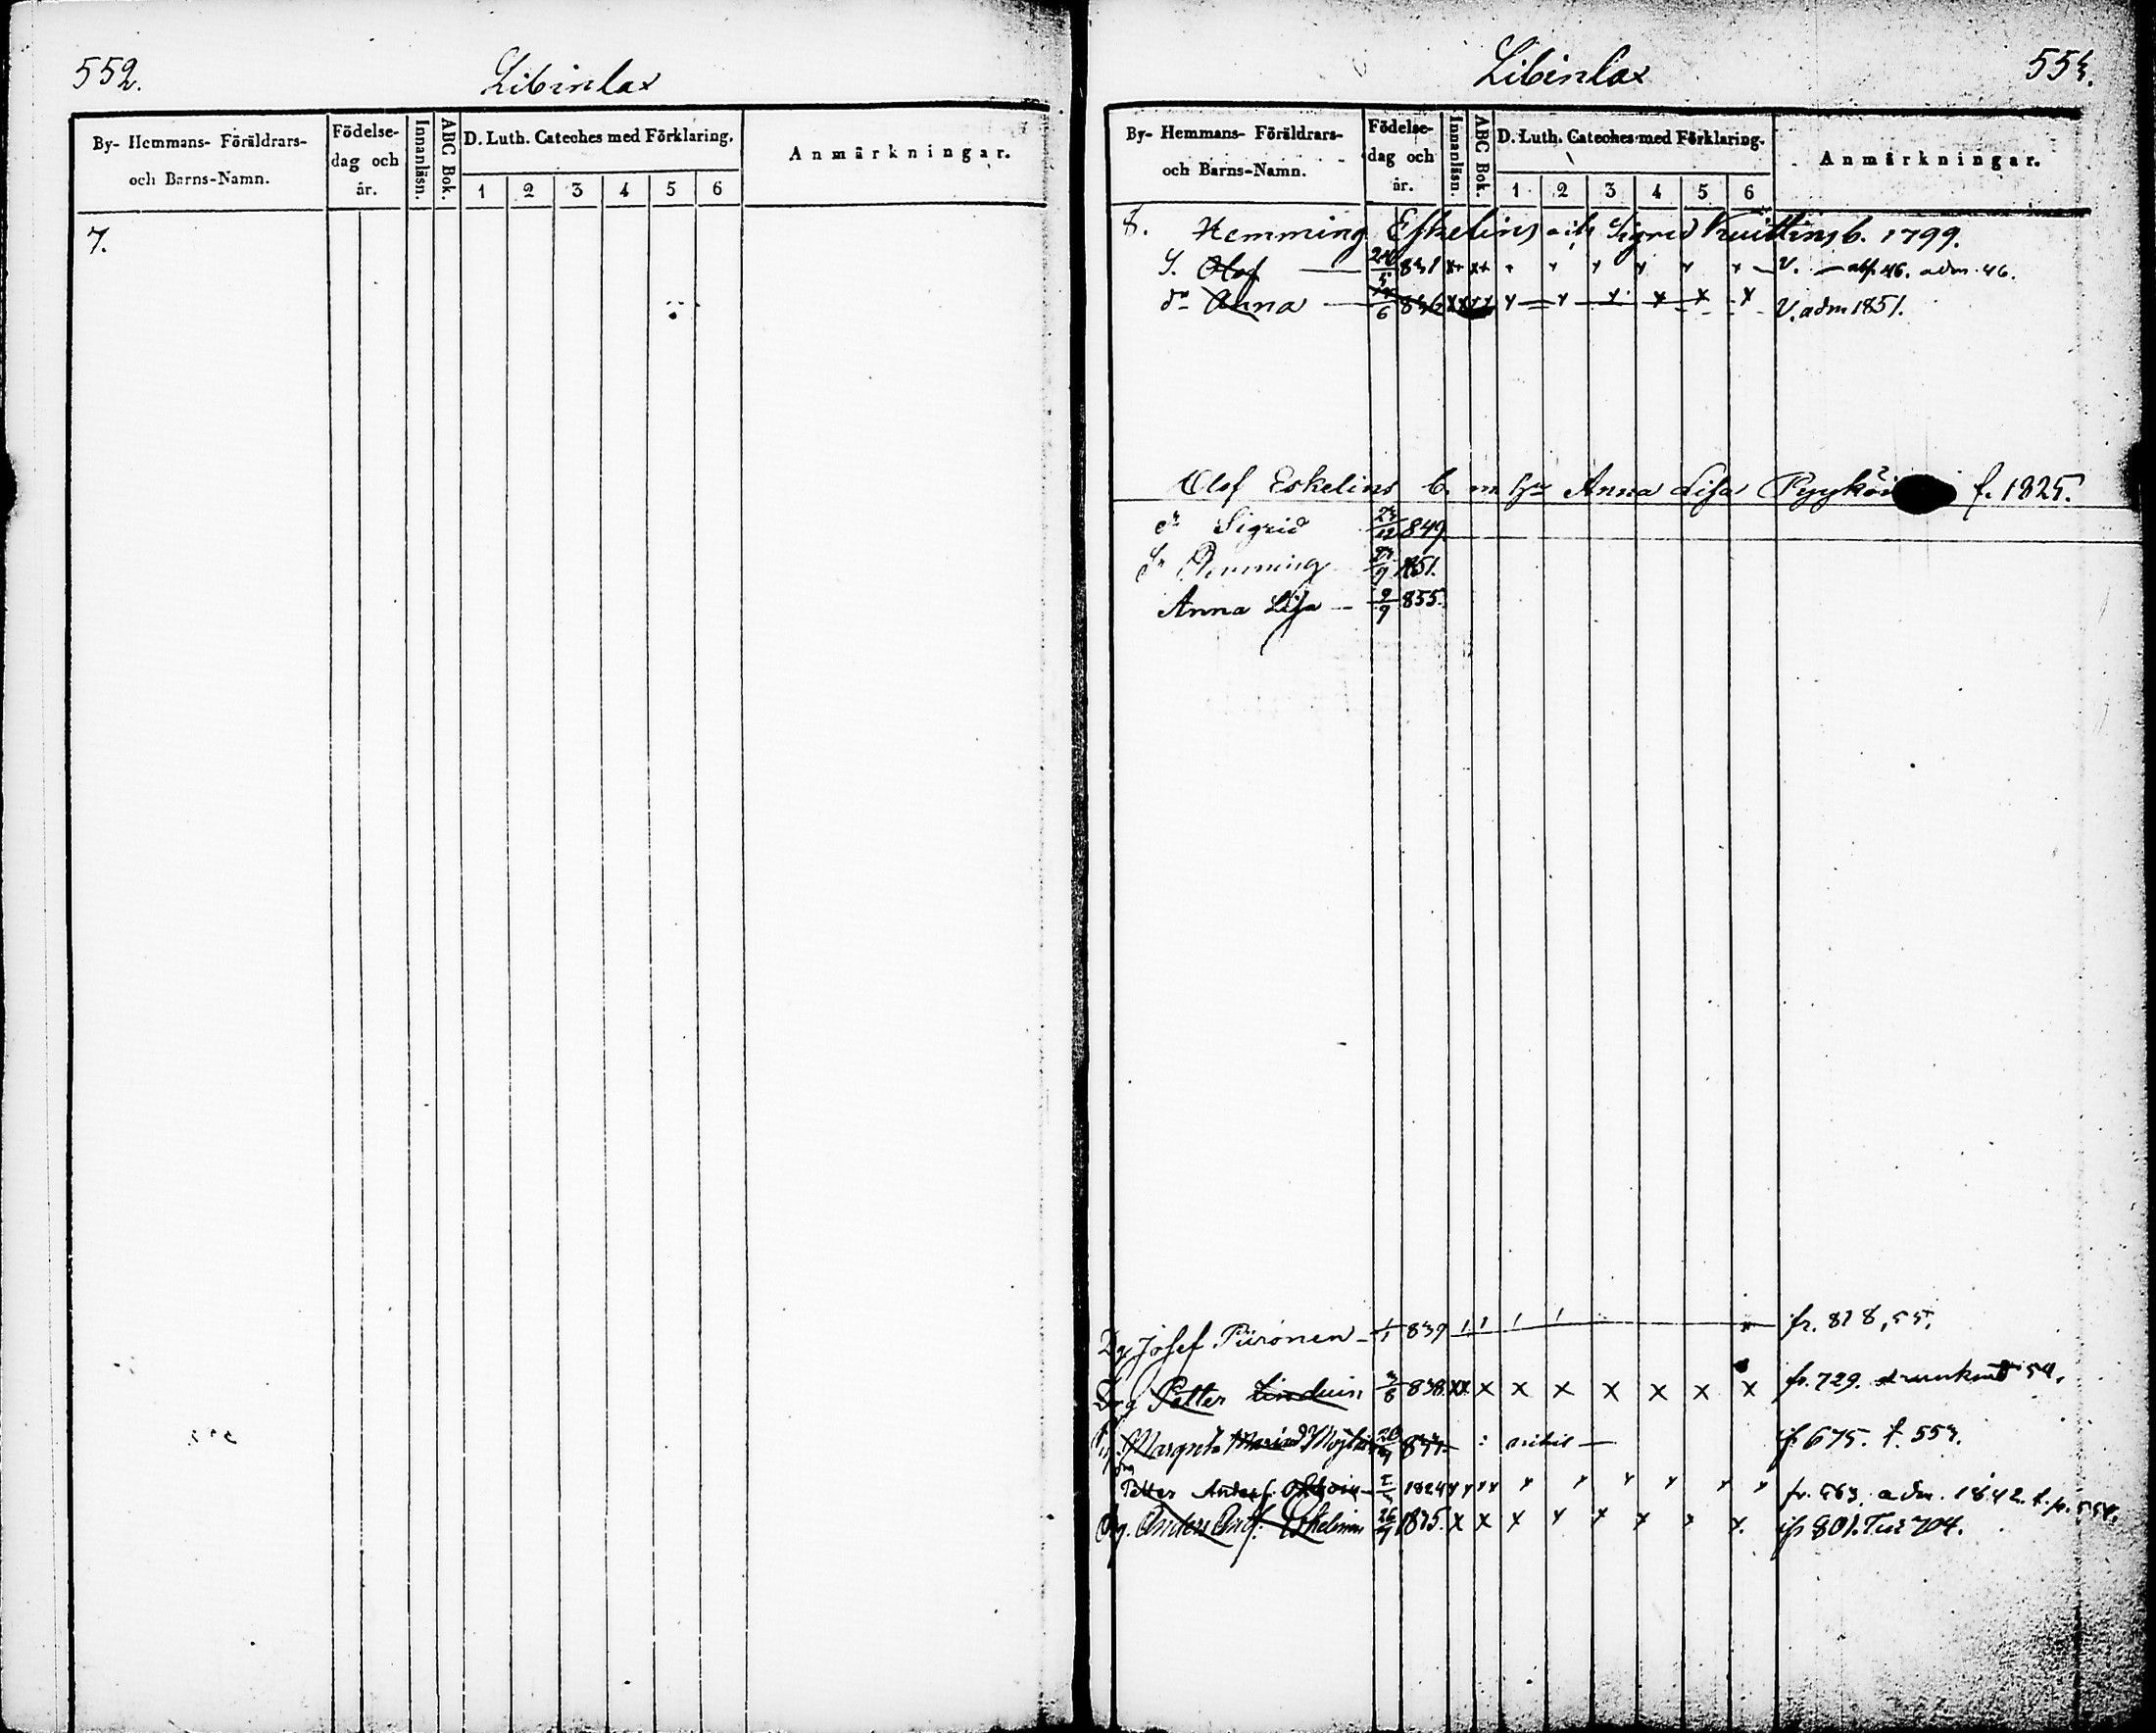 552.
Libinlax
By- Hemmans- Föräldrars- och Barns-Namn.
Födelse- dag och år.
Innanläsn.
ABC Bok.
D. Luth. Cateches med Förklaring.
1 2 3 4 5 6
Anmärkningar.
7.
Libinlax
553.
By- Hemmans- Föräldrars- och Barns-Namn.
Födelse- dag och år.
Innanläsn.
ABC Bok.
D. Luth. Cateches med Förklaring.
1 2 3 4 5 6
Anmärkningar.
8. Hemming Eskelins och Sigrid Kuittins b. 1799.
S. Olof 831 x x x x x x v. adm. 46.
dr Anna 6 836 x x x x x x V. adm 1851.
Olof Eskelins b. m hu Anna Lisa f. 1825.
dr Sigrid 12 849
Sn Hemming 9 1851.
Anna Lisa 9/9 855.
Dg Josef Piironen 1/1 839 fr. 828, 55.
Drg Petter 8 838 xx x x x x x x x fr. 729. 54.
Margreta Maria nihil 675. f. 553.
Petter Anders 1824 fr. 563. adm. 1842.
Anders Eskelinen 26 1835. x x x x x x x x 801. Tur 704.